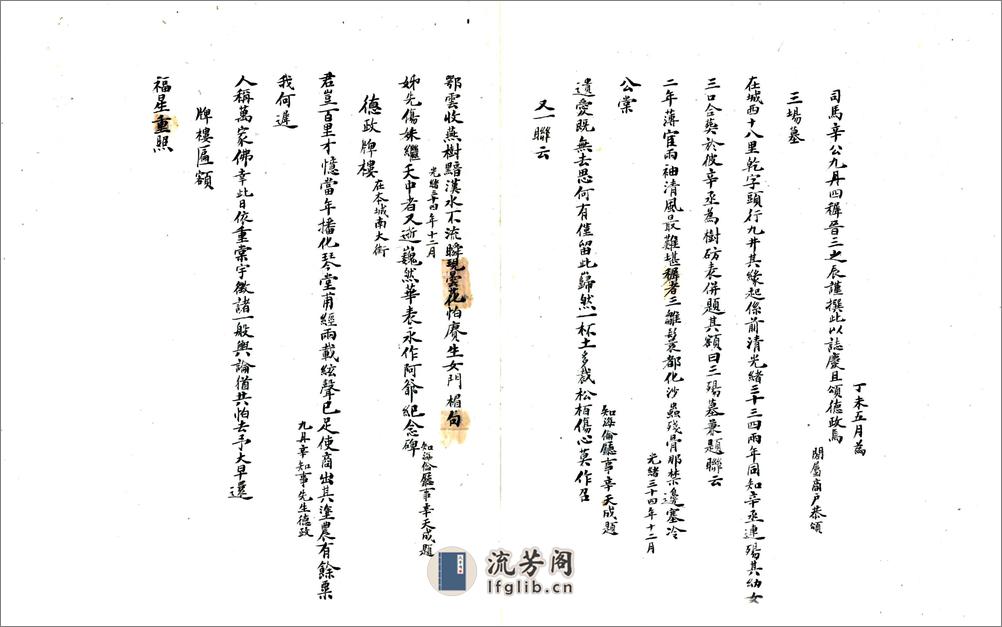 丁未五月為
司馬辛公九丹四穉晉三之辰謹撰此以誌慶且頌德政焉
闔屬商戶恭頌
三殤墓
在城西十八里乾字頭行九井其緣起係前清光緒三十三四兩年同知辛丞連殤其幼女
三口仝葬於彼辛丞為樹坊表併題其額曰三殤墓兼題聯云
二年薄宦兩袖清風最難堪穉者三雛髮裳都化沙蟲殘骨那禁邊塞冷
光緒三十四年十二月
公棠
知海倫廳事辛天成題
遺愛既無去思何有僅留此巋然一杯土多栽松栢傷心莫作召
又一聯云
鄂雲收燕樹黯漢水不流瞬現曇花怕賡生女門楣句
知海倫廳事辛天成題
姊先傷妹繼夭中者又逝巍然華表永作阿爺紀念碑
光緒三十四年十二月
德政牌樓
在本城南大街
君豈百里才憶當年播化琴堂甫經兩載絃聲已足使商出其塗農有餘粟
九丹辛知事先生德政
我何遲
人稱萬家佛幸此日依重棠宇徵諸一般輿論猶共怕去予大早還
牌樓匾額
福星重照
流芳阁
lfglib.cn